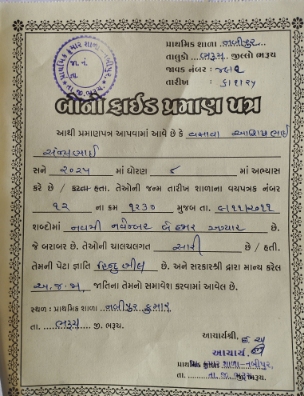 પ્રાથમિક શાળા નબીપુર
તાલુકો ભરૂચ જીલ્લો ભરૂચ
જાવક નંબર :
તારીખ :
બોનાફાઈડ પ્રમાણ પત્ર
આથી પ્રમાણપત્ર આપવામાં આવે છે કે વસાવા
સને ૨૦૨૫ માં ધોરણ ૮ માં અભ્યાસ
કરે છે / કરતા હતા. તેઓની જન્મ તારીખ શાળાના વયપત્રક નંબર
૧૨ ના ક્રમ ૧૨૩૦ મુજબ તા. ૯/૧૧/૨૦૧૧
શબ્દોમાં નવમી નવેમ્બર બે હજાર અગિયાર છે.
જે બરાબર છે. તેઓની ચાલચલગત સારી છે / હતી.
તેમની પેટા જ્ઞાતિ હિન્દુ ભીલ છે. અને સરકારશ્રી દ્વારા માન્ય કરેલ
અ.જ.જા. જાતિના તેમનો સમાવેશ કરવામાં આવેલ છે.
સ્થળ : પ્રાથમિક શાળા નબીપુર કુમાર
તા. ભરૂચ જી. ભરૂચ.
આચાર્યશ્રી,
આચાર્ય
પ્રાથમિક કુમાર શાળા-નબીપુર,
તા. જી. ભરૂચ.